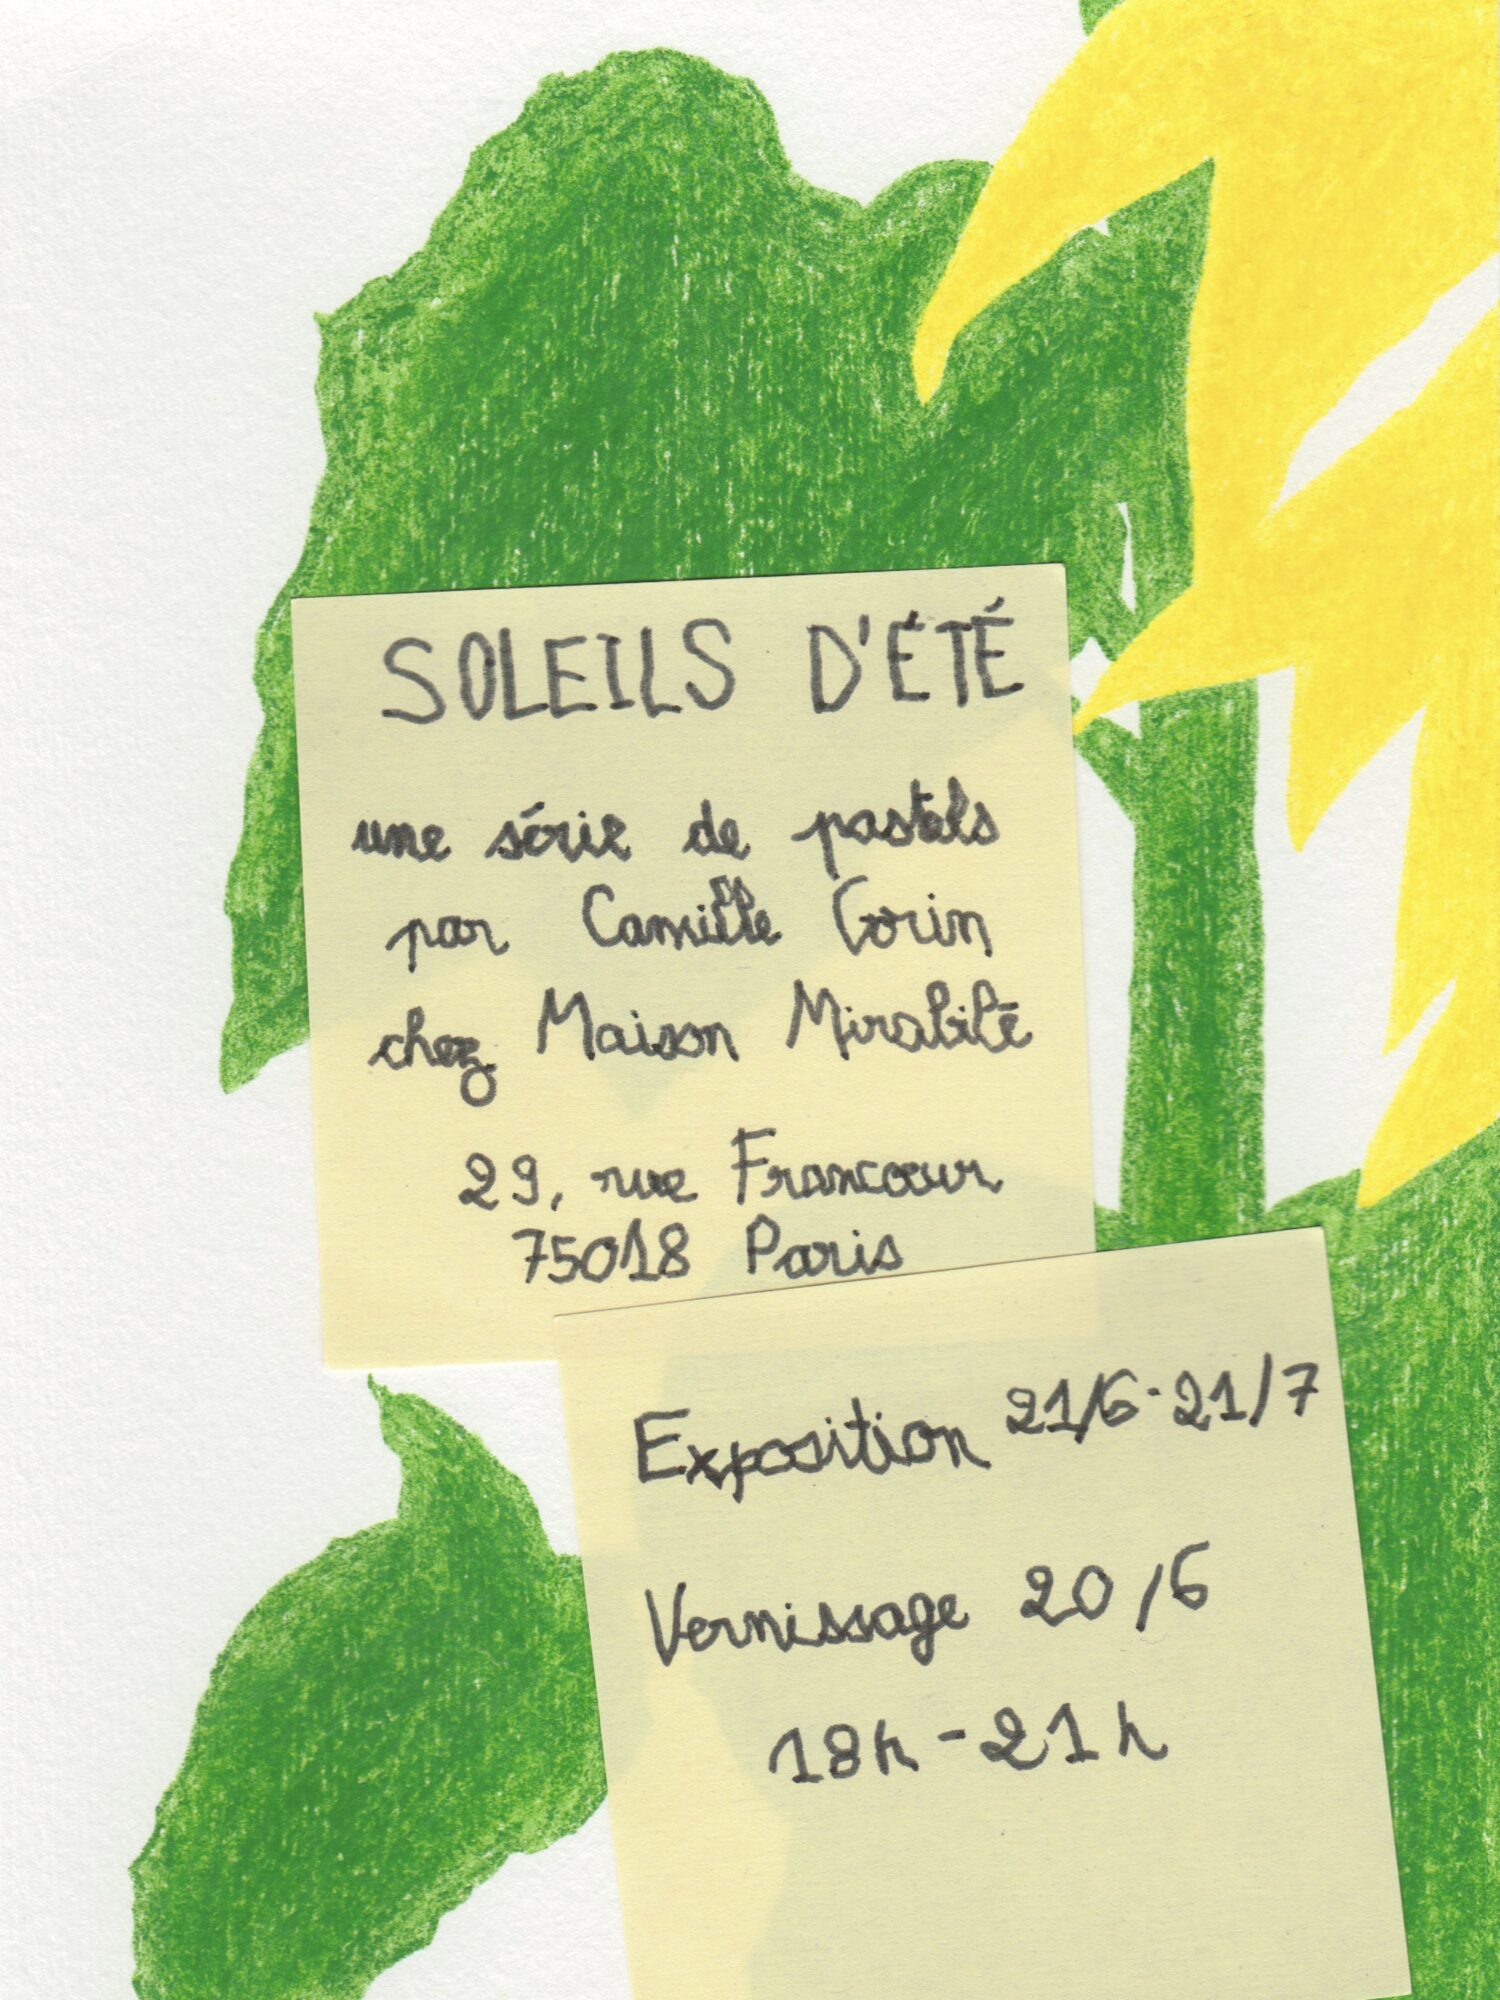 SOLEILS D'ÉTÉ
une série de pastels
par Camille Corin
chez Maison Mirabilē
29, rue Francoeur
75018 Paris
Exposition 21/6-21/7
Vernissage 20/6
18h-21h